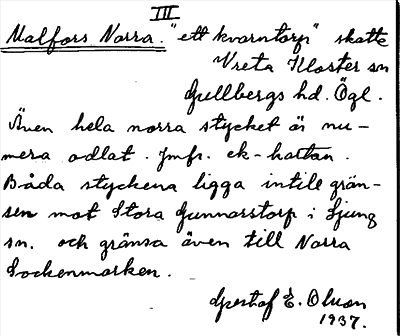 III
Malfors Norra. "ett kvarntorp" skatte
Vreta Kloster sn
Gullbergs hd. Ögl.
Även hela norra stycket är nu-
mera odlat. Jmfr. ek-kartan.
Båda styckena ligga intill grän-
sen mot Stora Gunnorstorp i Ljung
sn. och gränsa även till Norra
Sockenmarken.
Gustaf E. Olson
1937.